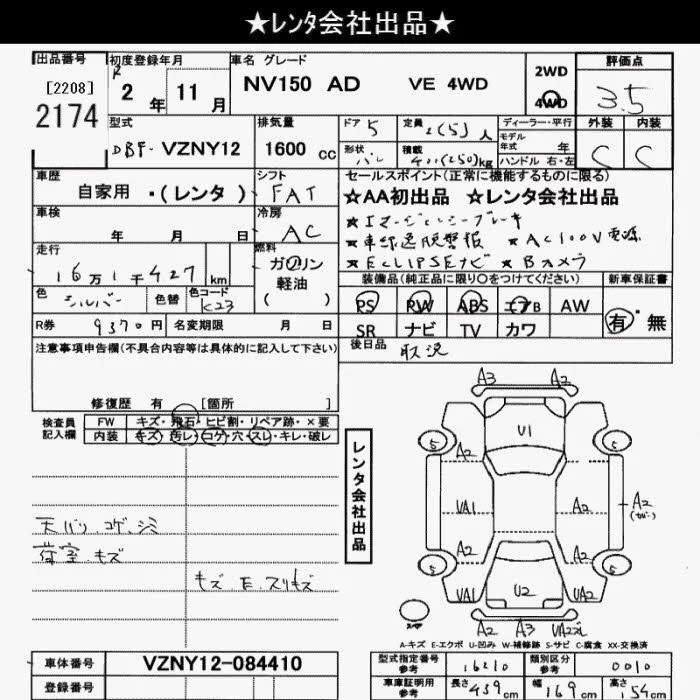 ★レンタ会社出品★
出品番号
[2208]
2174
初度登録年月
R 2 年 11 月
車名 グレード
NV150 AD VE 4WD
2WD
4WD
評価点
3.5
型式
DBF- VZNY12
排気量
1600 cc
ドア 5
定員 2(5)人
形状 バン
積載 400(250)kg
ディーラー・平行
モデル年式 年
ハンドル 右・左
外装 内装
C C
車歴
自家用 ・(レンタ)
シフト
FAT
セールスポイント(正常に機能するものに限る)
★AA初出品 ★レンタ会社出品
★エマージェンシーブレーキ
★車線逸脱警報 ★AC100V電源
★ECLIPSEナビ ★Bカメラ
車検
年 月 日
冷房
AC
走行
16万1千427 km
燃料
ガソリン
軽油
( )
色 シルバー 色替 色コード K23
装備品(純正品に限り○をつけてください)
PS PW ABS エアB AW
SR ナビ TV カワ
新車保証書
有・無
R券 9370円 名変期限 月 日
後日品 取説
注意事項申告欄(不具合内容等は具体的に記入して下さい)
修復歴 有 [箇所 ]
検査員記入欄
FW キズ・飛石・ヒビ割・リペア跡・×要
内装 キズ・汚レ・コゲ・穴・スレ・キレ・破レ
天バリ、コゲ、シミ
荷室、キズ
キズ、E、スリキズ
レンタ会社出品
A3 A2
U1
5 5
A2
UA1 A2 A2(カバー)
A2 A2
5 5
UA1 U2 UA2
A2 A3 UA2ズレ
スペア
A-キズ E-エクボ U-凹み W-補修跡 S-サビ C-腐食 XX-交換済
車体番号 VZNY12-084410
登録番号
型式指定番号参考 16210
類別区分参考 0010
車庫証明用参考
長さ 439cm 幅 169cm 高さ 154cm